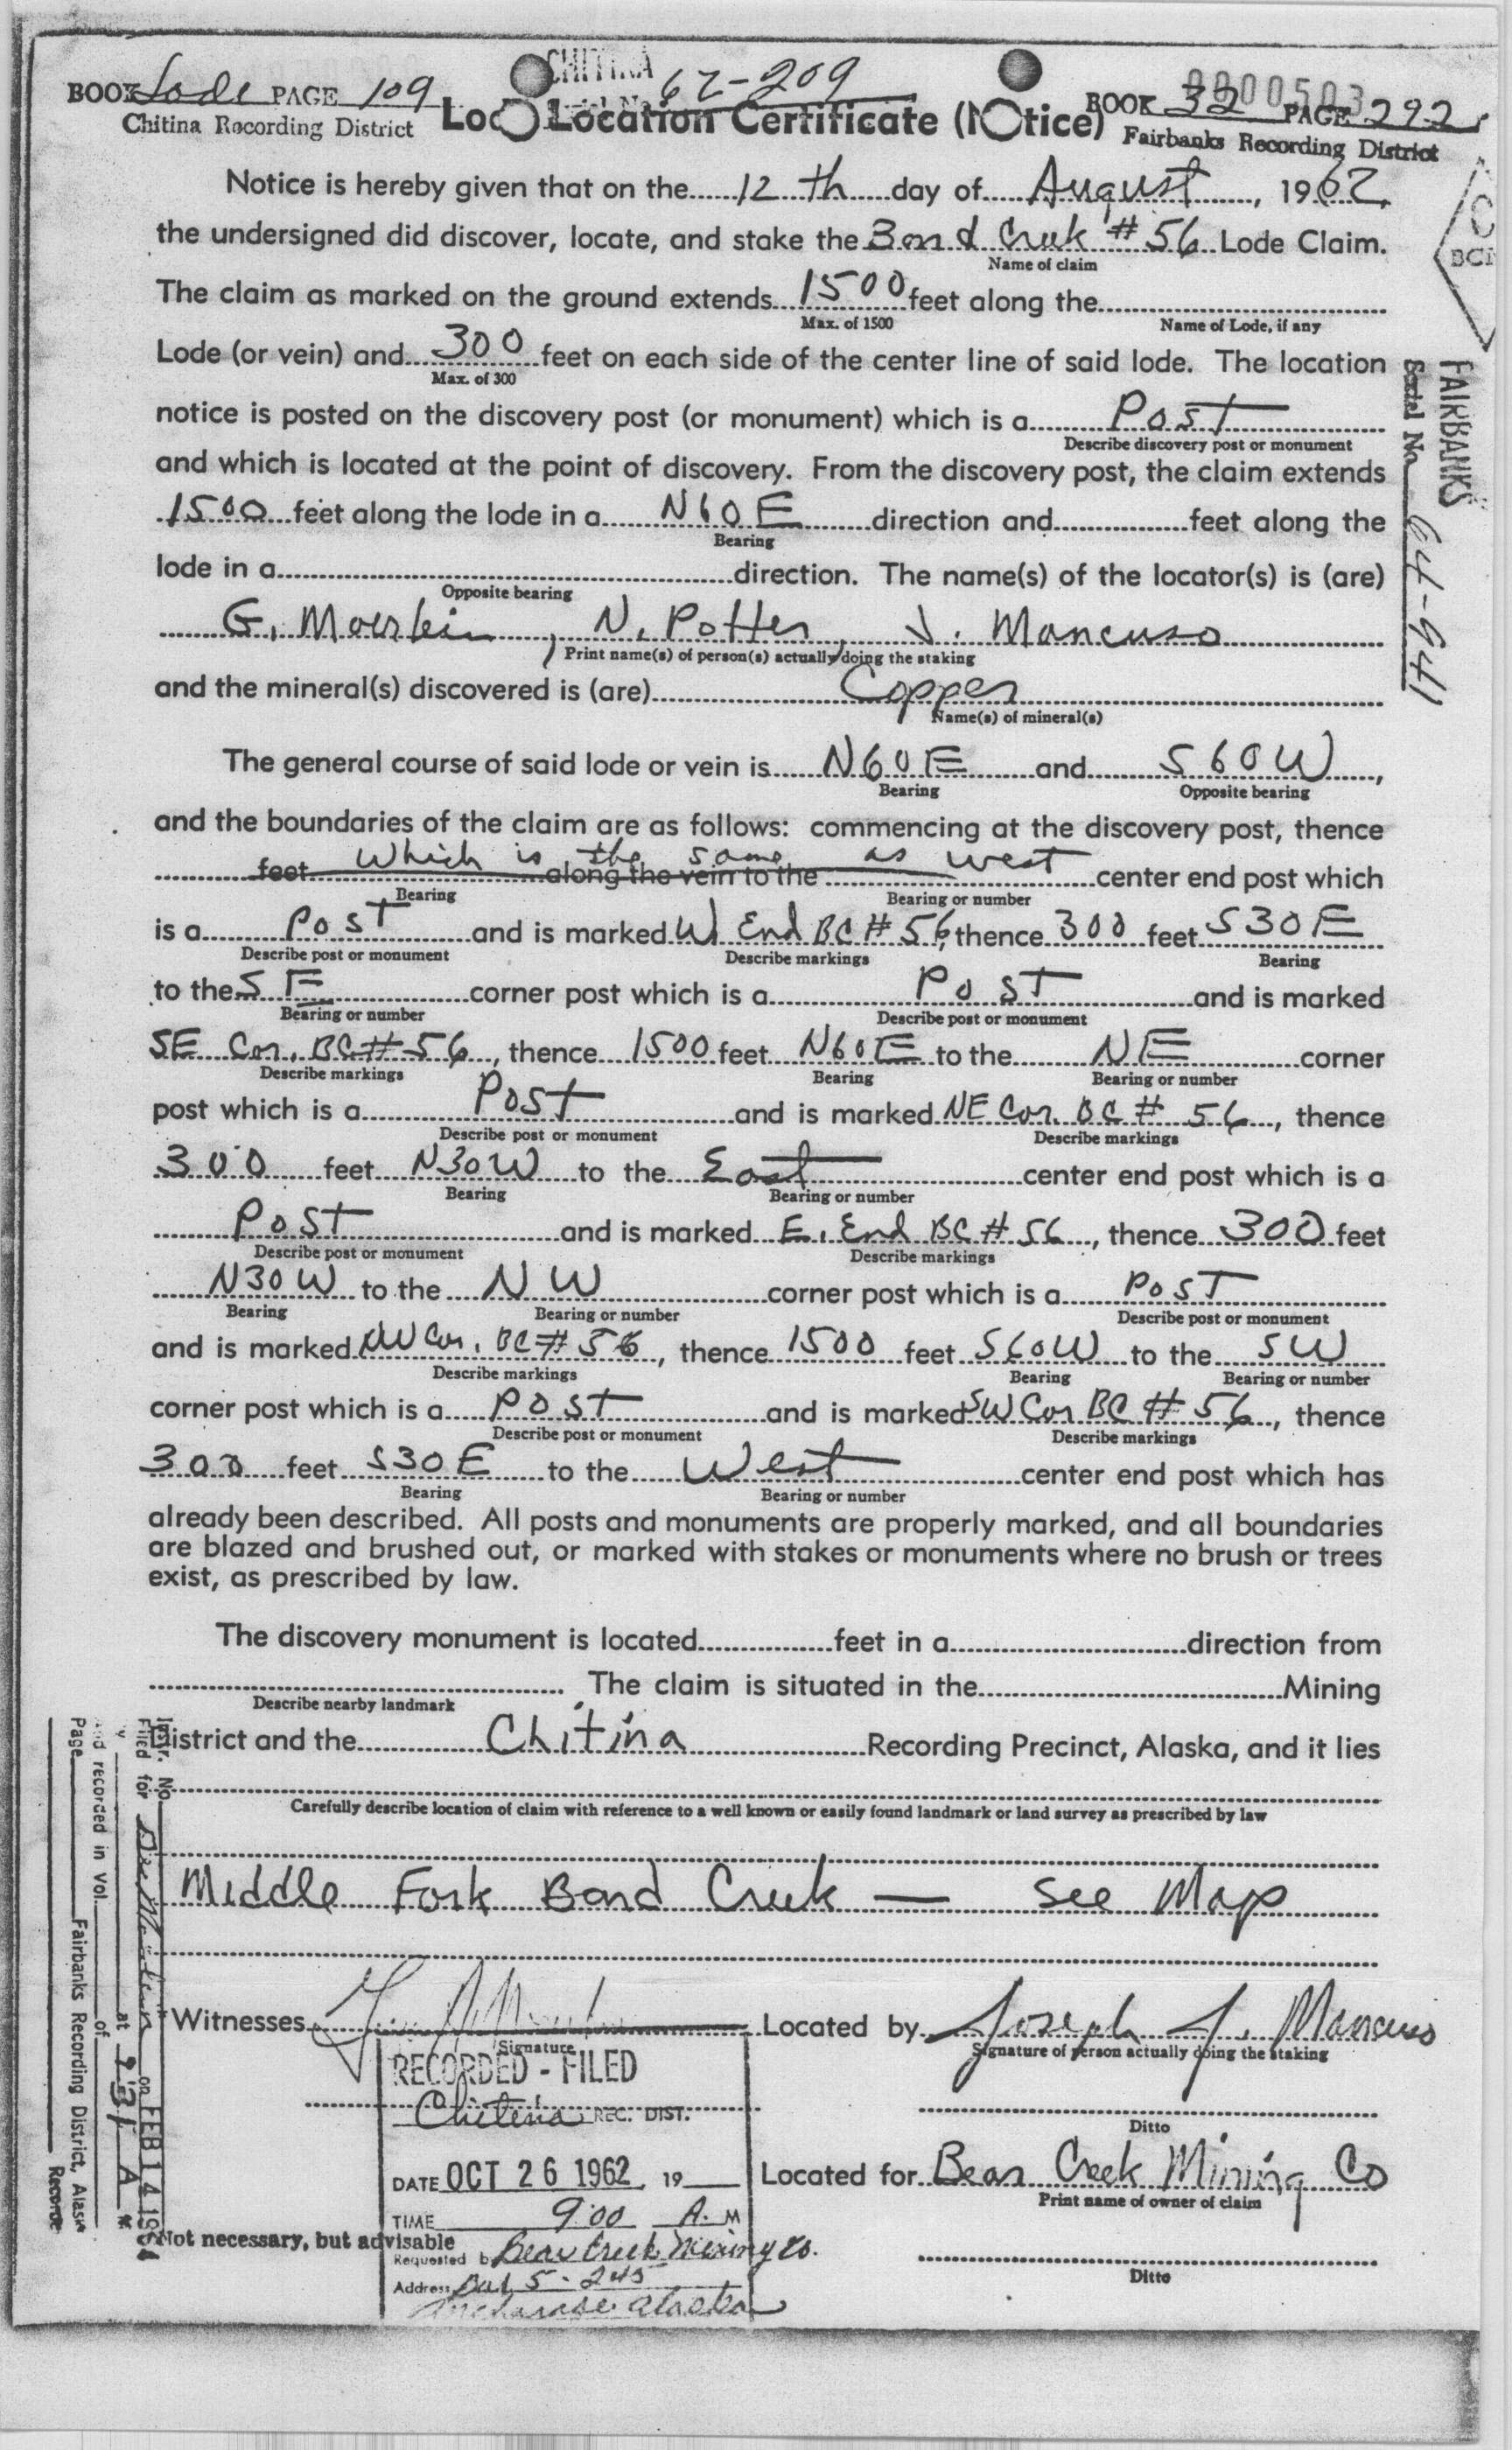 CHITINA
BOOK Lode PAGE 109
62-209
0000503
BOOK 32 PAGE 292
Chitina Recording District
Location Certificate (Notice)
Fairbanks Recording District
Notice is hereby given that on the 12th day of August, 1962,
the undersigned did discover, locate, and stake the Bond Creek #56 Lode Claim.
Name of claim
The claim as marked on the ground extends 1500 feet along the
Max. of 1500 Name of Lode, if any
Lode (or vein) and 300 feet on each side of the center line of said lode. The location
Max. of 300
notice is posted on the discovery post (or monument) which is a Post
Describe discovery post or monument
and which is located at the point of discovery. From the discovery post, the claim extends
1500 feet along the lode in a N60E direction and feet along the
Bearing
lode in a direction. The name(s) of the locator(s) is (are)
Opposite bearing
G. Moerlein, N. Potter, J. Mancuso
Print name(s) of person(s) actually doing the staking
and the mineral(s) discovered is (are) Copper
Name(s) of mineral(s)
The general course of said lode or vein is N60E and S60W,
Bearing Opposite bearing
and the boundaries of the claim are as follows: commencing at the discovery post, thence
feet which is along the vein to the the same as west center end post which
Bearing Bearing or number
is a Post and is marked W End BC #56, thence 300 feet S30E
Describe post or monument Describe markings Bearing
to the SE corner post which is a Post and is marked
Bearing or number Describe post or monument
SE Cor. BC #56, thence 1500 feet N60E to the NE corner
Describe markings Bearing Bearing or number
post which is a Post and is marked NE Cor. BC #56, thence
Describe post or monument Describe markings
300 feet N30W to the East center end post which is a
Bearing Bearing or number
Post and is marked E. End BC #56, thence 300 feet
Describe post or monument Describe markings
N30W to the NW corner post which is a Post
Bearing Bearing or number Describe post or monument
and is marked NW Cor. BC #56, thence 1500 feet S60W to the SW
Describe markings Bearing Bearing or number
corner post which is a Post and is marked SW Cor BC #56, thence
Describe post or monument Describe markings
300 feet S30E to the West center end post which has
Bearing Bearing or number
already been described. All posts and monuments are properly marked, and all boundaries
are blazed and brushed out, or marked with stakes or monuments where no brush or trees
exist, as prescribed by law.
The discovery monument is located feet in a direction from
. The claim is situated in the Mining
Describe nearby landmark
District and the Chitina Recording Precinct, Alaska, and it lies
Carefully describe location of claim with reference to a well known or easily found landmark or land survey as prescribed by law
Middle Fork Bond Creek — see Map
Witnesses Located by Joseph J. Mancuso
Signature Signature of person actually doing the staking
RECORDED - FILED
Chitina REC. DIST.
Ditto
DATE OCT 26 1962, 19
Located for Bear Creek Mining Co
Print name of owner of claim
TIME 9:00 A. M
Not necessary, but advisable
Requested by Bear Creek Mining Co.
Ditto
Address 5-245
Anchorage Alaska
FAIRBANKS
Serial No. 64-941
Instr. No.
Filed for
on FEB 14
at 9:31 A
and recorded in Vol. of
Page Fairbanks Recording District, Alaska